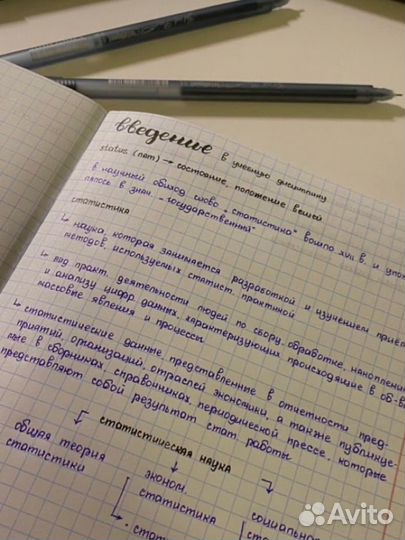 введение в учебную дисциплину
status (лат) → состояние, положение вещей
в научный обиход слово „статистика" вошло XVII в. и упот
лялось в знач. „государственный"
статистика
↳ наука, которая занимается разработкой и изучением приём
методов, используемых статист. практикой
↳ вид практ. деятельности людей по сбору, обработке, накоплени
и анализу цифр. данных, характеризующих происходящие в об-в
массовые явления и процессы
↳ статистические данные, представленные в отчетности пред-
приятий, организаций, отраслей экономики, а также публикуе-
мые в сборниках, справочниках, периодической прессе, которые
представляют собой результат стат. работы
статистическая наука
общая теория
статистики
эконом.
статистика
социальна
Avito